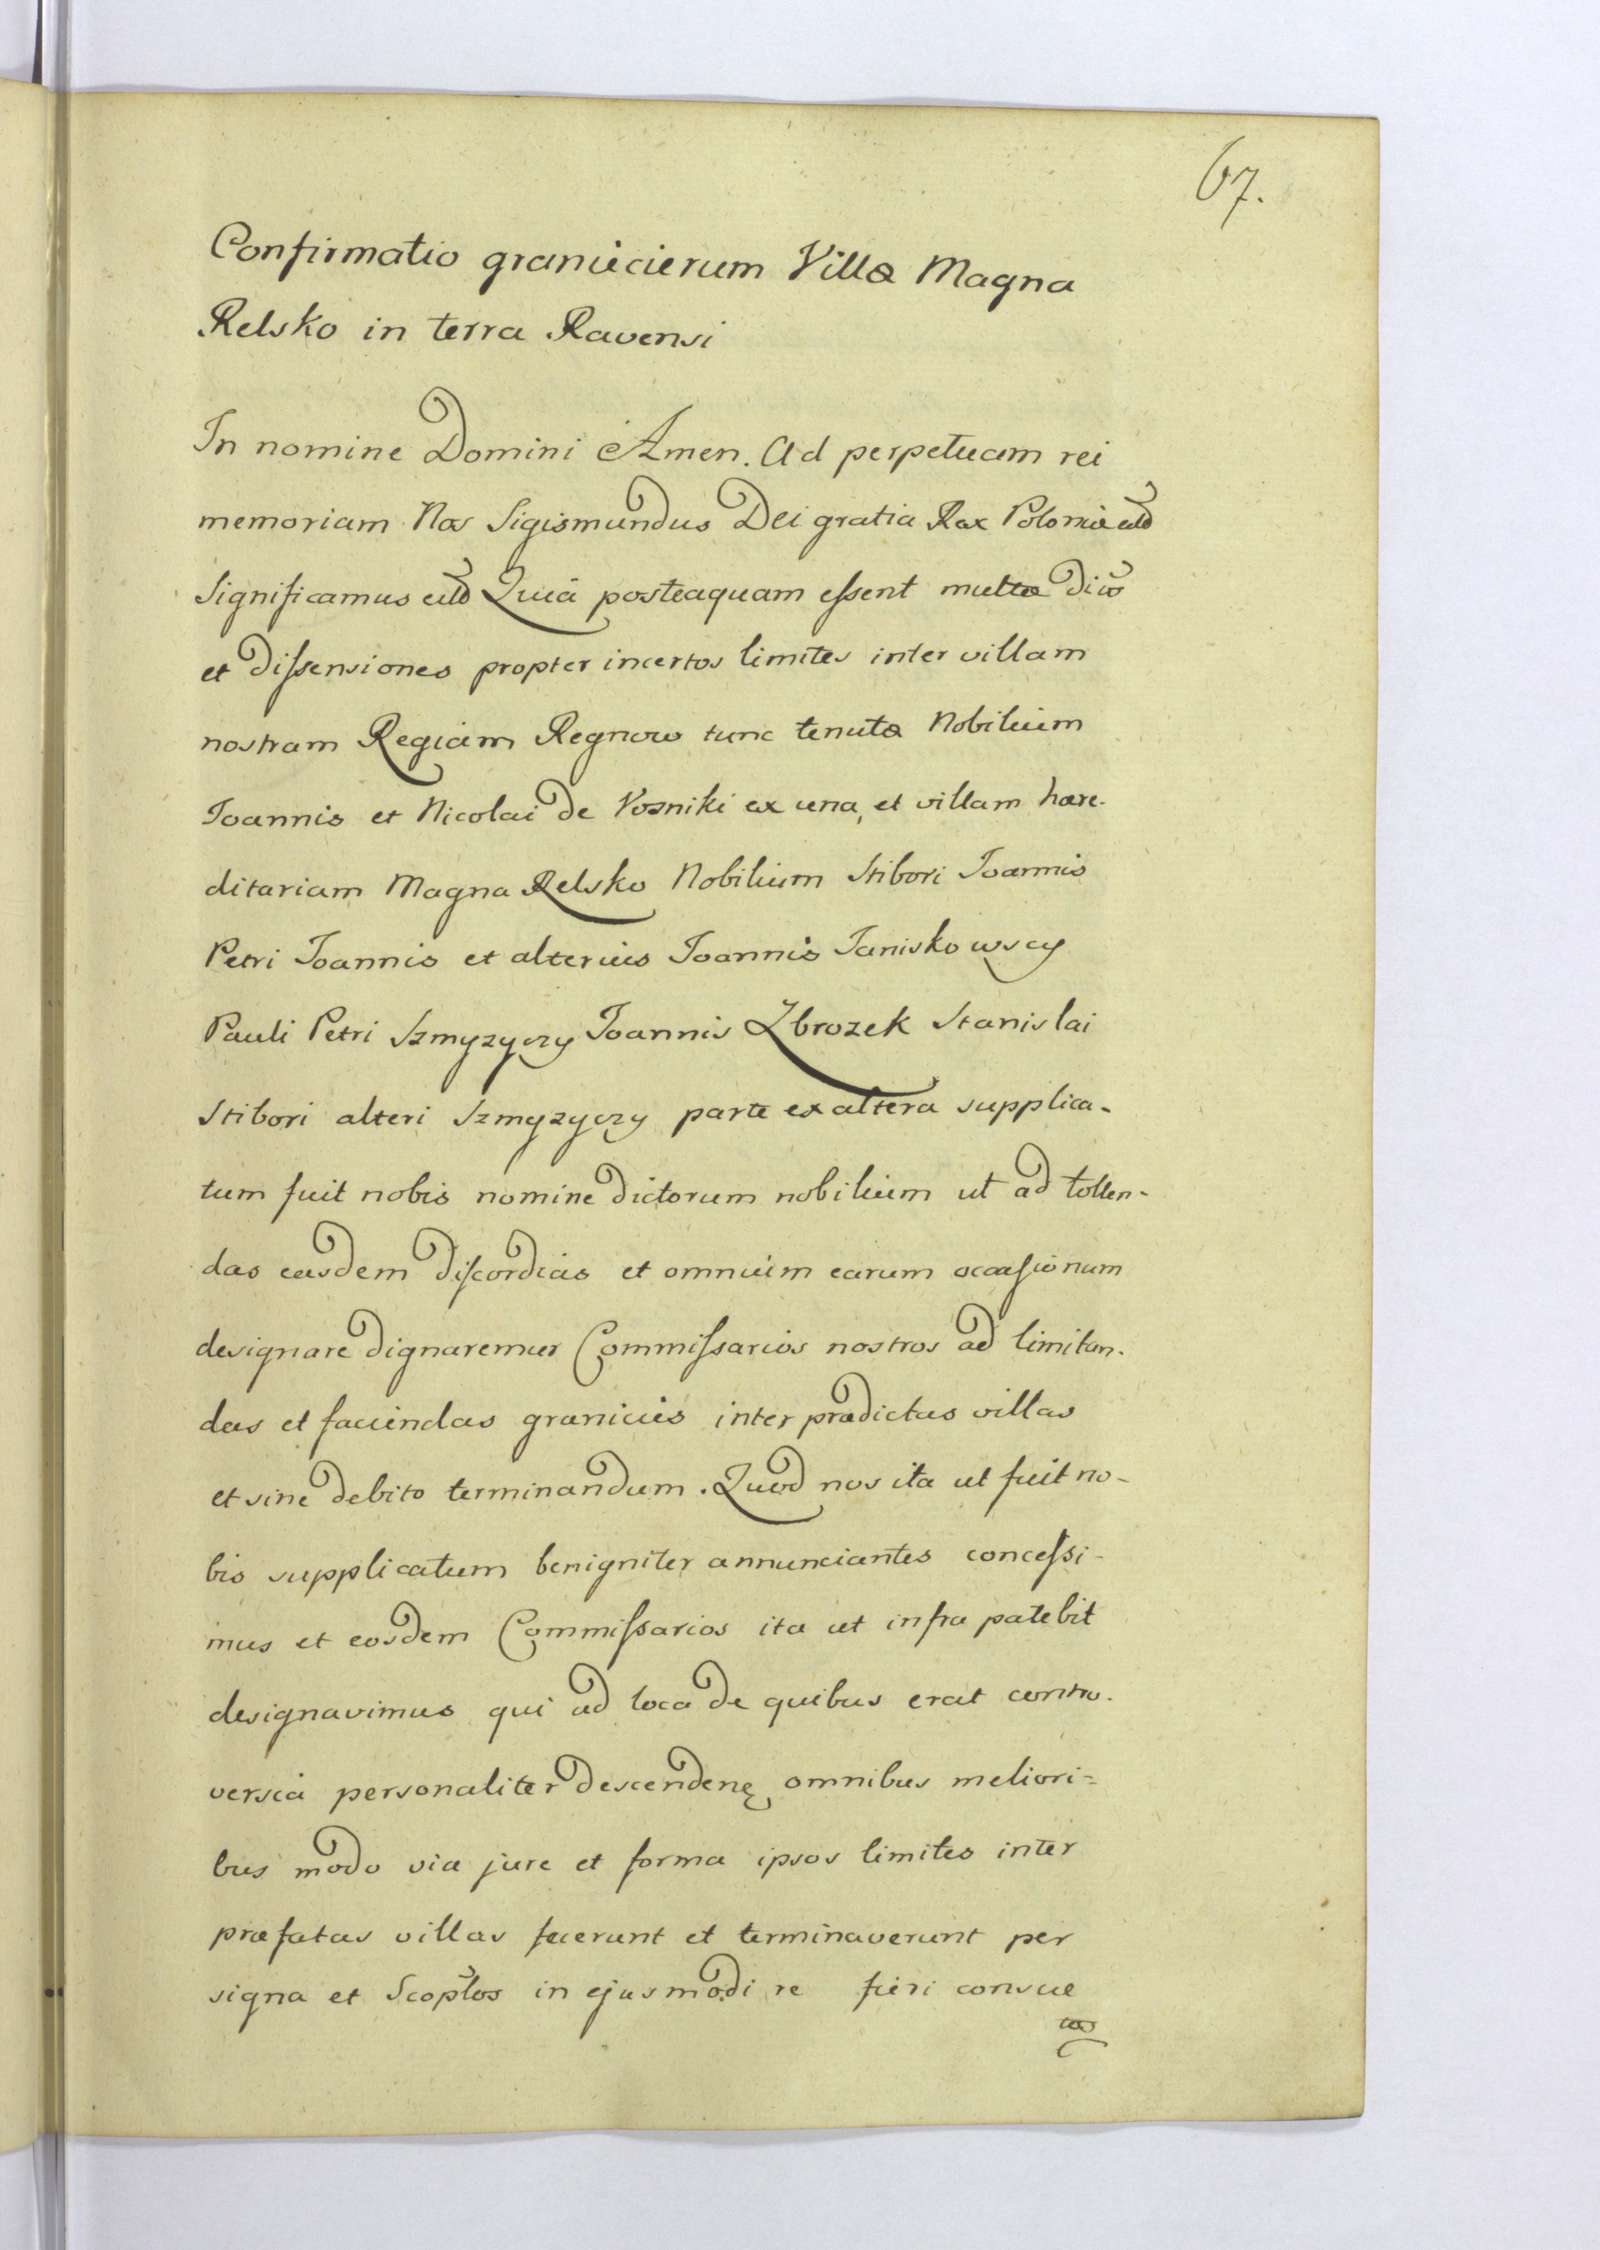 67.
Confirmatio graniicierum Villæ Magna
Relsko in terra Ravensi
In nomine Domini Amen. Ad perpetuam rei
memoriam Nos Sigismundus Dei gratia Rex Poloniæ
Significamus Quia posteaquam essent multæ
et dissensiones propter incertos limites inter villam
nostram Regiam Regnow tunc tenutæ Nobilium
Joannis et Nicolai de Vozniki ex una, et villam hære-
ditariam Magna Relsko Nobilium Stibori Joannis
Petri Joannis et alterius Joannis Janiskowscy
Pauli Petri Szmyzyczy Joannis Zbrozek Stanislai
Stibori alteri Szmyzyczy parte ex altera supplica-
tum fuit nobis nomine dictorum nobilium ut ad tollen-
das easdem discordias et omnium earum occasionum
designare dignaremur Commissarios nostros ad limitan-
das et faciendas granicies inter prædictas villas
et sine debito terminandum. Quod nos ita ut fuit no-
bis supplicatum benigniter annunciantes concessi-
mus et eosdem Commissarios ita ut infra patebit
designavimus qui ad loca de quibus erat contro-
versia personaliter descenden omnibus meliori=
bus modo via jure et forma ipsos limites inter
præfatas villas fecerunt et terminaverunt per
signa et Scoplos in ejusmodi re fieri consue
tas